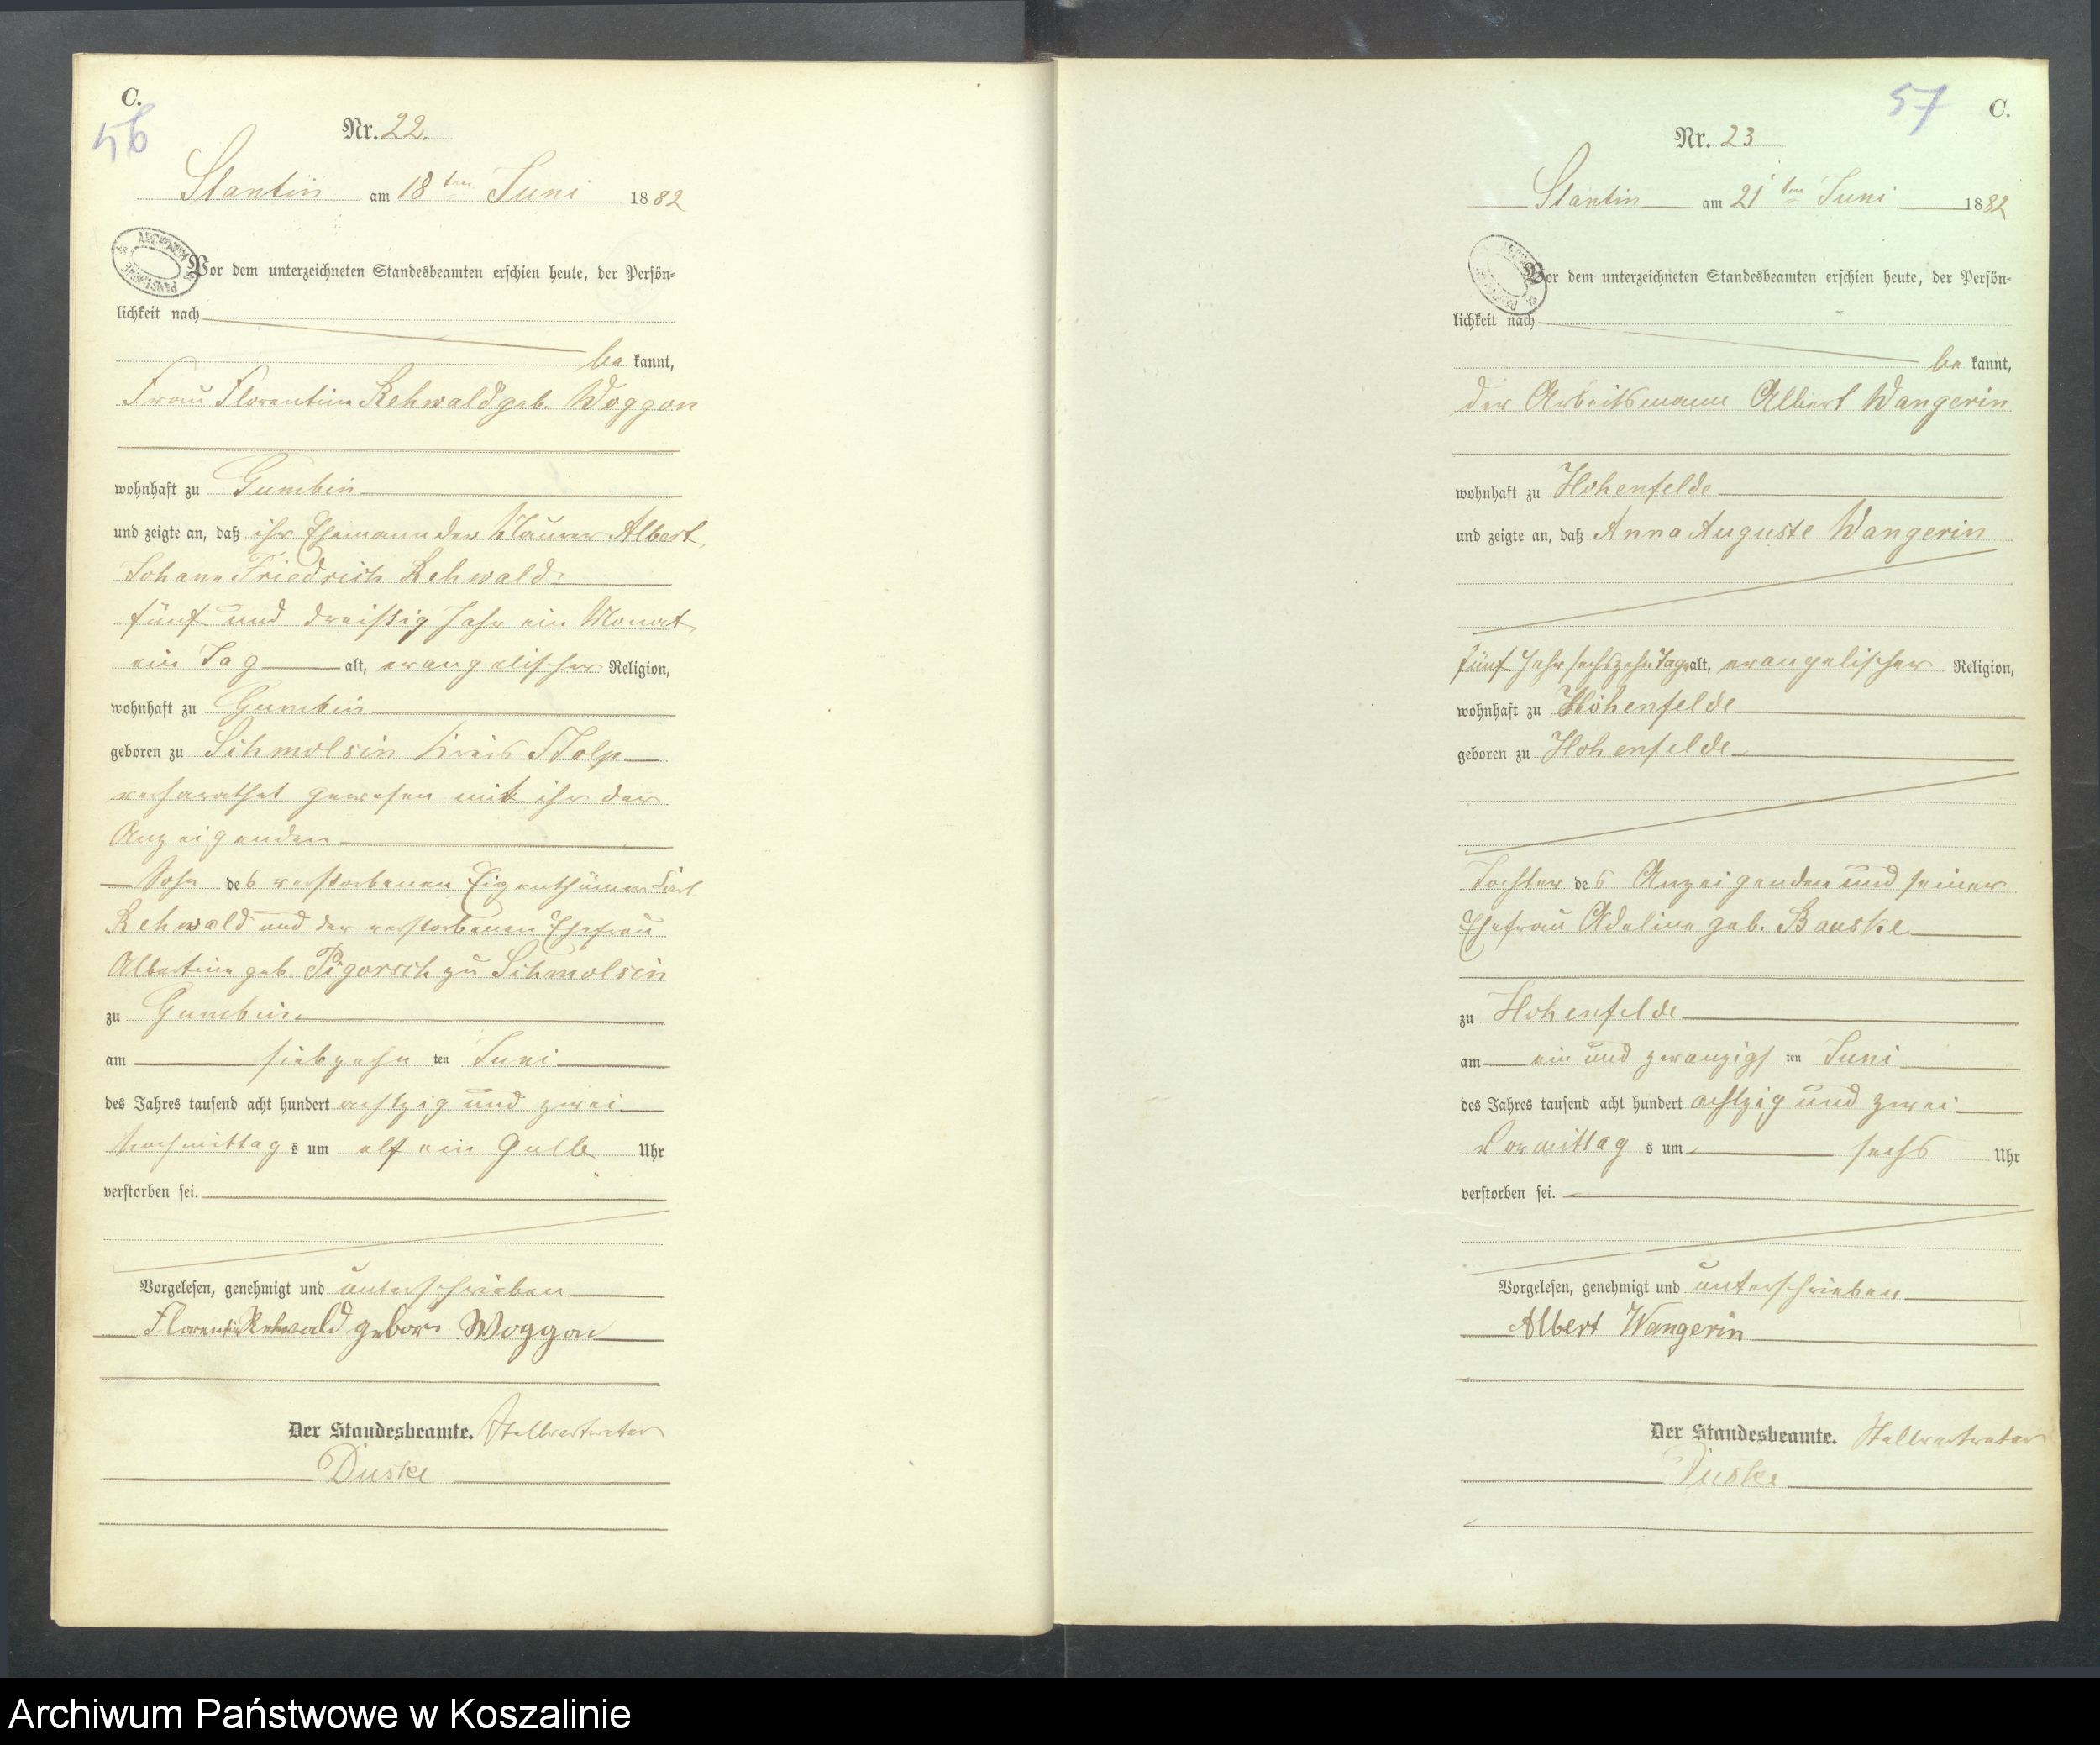 C.
56
Nr. 22.
Stantin am 18ten Juni 1882
Vor dem unterzeichneten Standesbeamten erschien heute, der Persön-
lichkeit nach
be kannt,
Frau Florentine Rehwald geb. Woggon
wohnhaft zu Gumbin
und zeigte an, daß ihr Ehemann der Maurer Albert
Johann Friedrich Rehwald
fünf und dreißig Jahr ein Monat
ein Tag alt, evangelischer Religion,
wohnhaft zu Gumbin
geboren zu Schmolsin Kreis Stolp
verharathet gewesen mit ihr der
Anzeigenden
Sohn des verstorbenen Eigenthümer Carl
Rehwald und der verstorbenen Ehefrau
Albertine geb. Pigorsch zu Schmolsin
zu Gumbin
am siebzehn ten Juni
des Jahres tausend acht hundert achtzig und zwei
Nachmittag s um elf ein Uhr
verstorben sei.
Vorgelesen, genehmigt und unterschrieben
Florentine Rehwald geborn Woggon
Der Standesbeamte. Stellvertreter
Duske
57
C.
Nr. 23
Stantin am 21ten Juni 1882
Vor dem unterzeichneten Standesbeamten erschien heute, der Persön-
lichkeit nach
be kannt,
der Arbeitsmann Albert Wangerin
wohnhaft zu Hohenfelde
und zeigte an, daß Anna Auguste Wangerin
fünf Jahr sechszehn Tage alt, evangelischer Religion,
wohnhaft zu Hohenfelde
geboren zu Hohenfelde
Tochter des Anzeigenden und seiner
Ehefrau Adeline geb. Bauske
zu Hohenfelde
am ein und zwanzigs ten Juni
des Jahres tausend acht hundert achtzig und zwei
Vormittag s um sechs Uhr
verstorben sei.
Vorgelesen, genehmigt und unterschrieben
Albert Wangerin
Der Standesbeamte. Stellvertreter
Duske
Archiwum Państwowe w Koszalinie